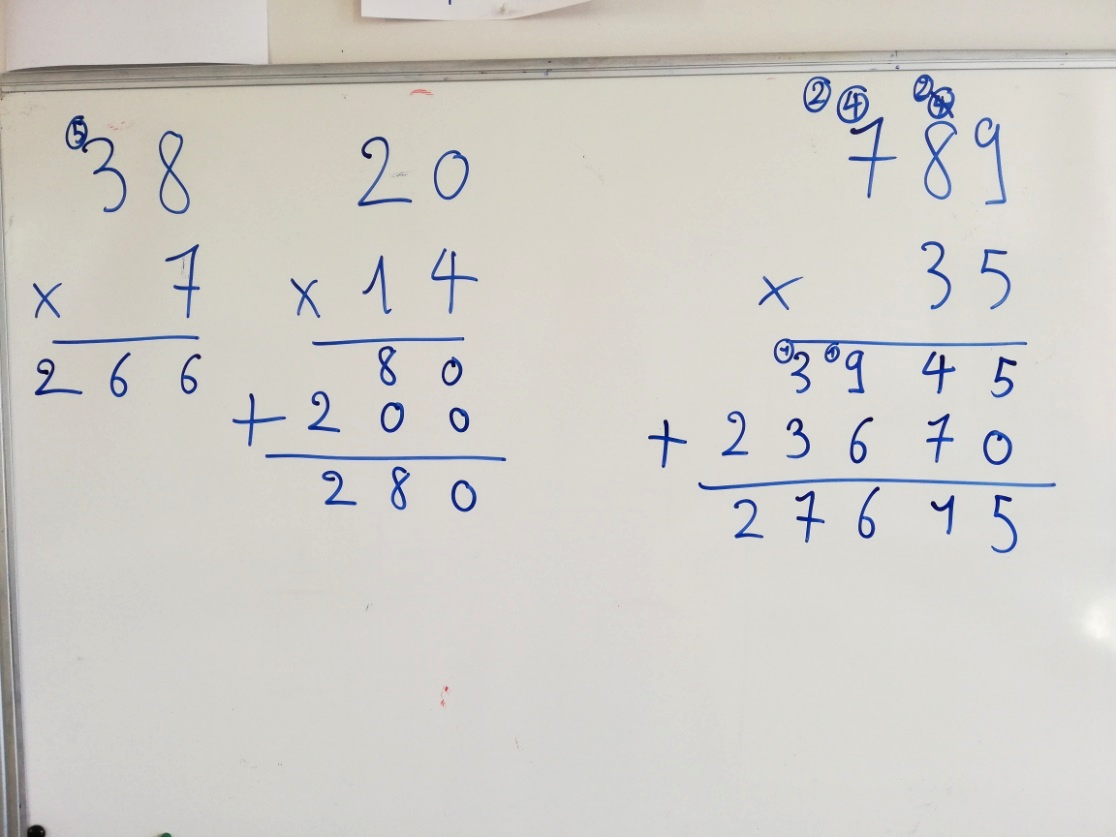 ⑤
38
× 7
266
20
× 14
80
+ 200
280
② ④ ②
789
× 35
① ①
3945
+ 23670
27615